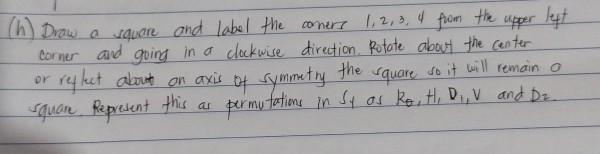 (h) Draw a square and label the corners 1, 2, 3, 4 from the upper left
corner and going in a clockwise direction. Rotate about the center
or reflect about an axis of symmetry the square so it will remain a
square. Represent this as permutations in S4 as Rθ, H, D1, V and D2.